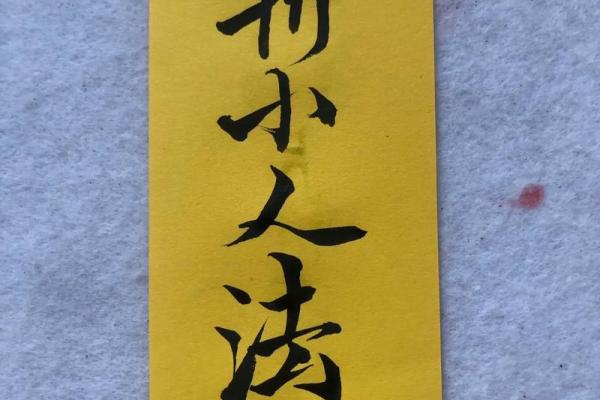 小人法